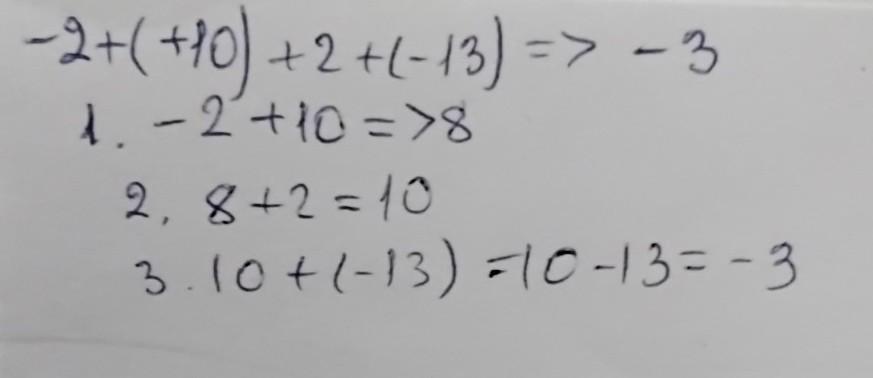 -2+(+10)+2+(-13) => -3
1. -2+10=>8
2. 8+2=10
3. 10+(-13)=10-13=-3